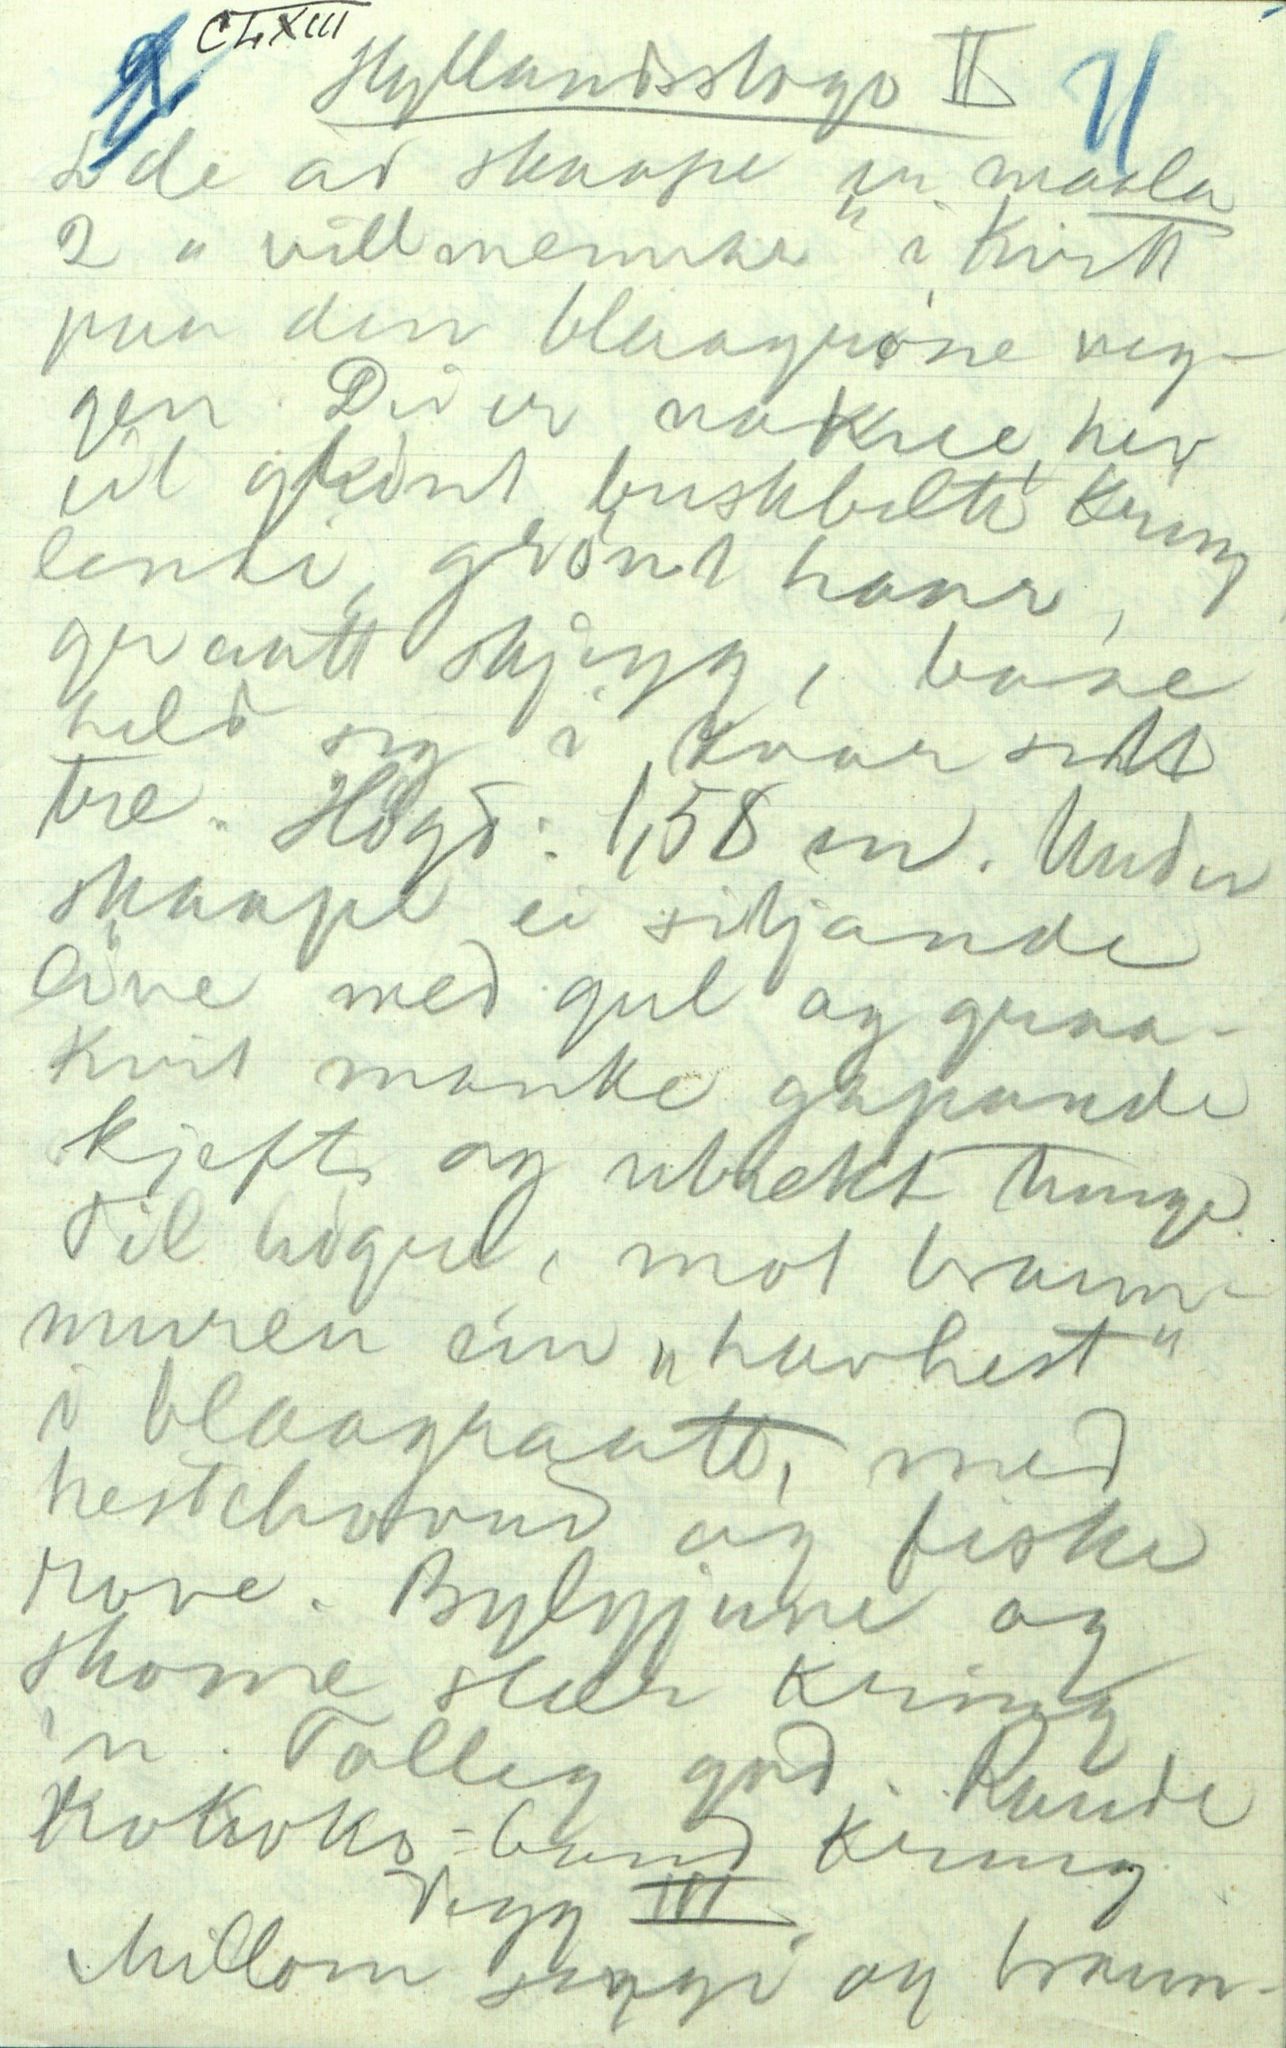 CLXIII
Hyllandsstogo II 11
Ide ad skaape er maala
2 „ villmenner" i kvitt
paa den blaagröne veg-
gen. Dei er nakne, hev
eit grönt buskbelte kring
lenda, grönt haar,
graatt skjegg, baae
held seg i kvar sitt
tre. Högd: 1,58 m. Under
skaape ei sitjande
löve med gul og graa-
kvit manke gapande
kjeft og utrekt tunge.
Til högre, mot braun-
muren ein „havhest"
i blaagraatt, med
hestehovud og fiske
rove. Bylgjune og
skome slær kring
'n. Tolleg god. Runde
Rokoko-band kring
Vegg III.
Millom snyggi og braun-